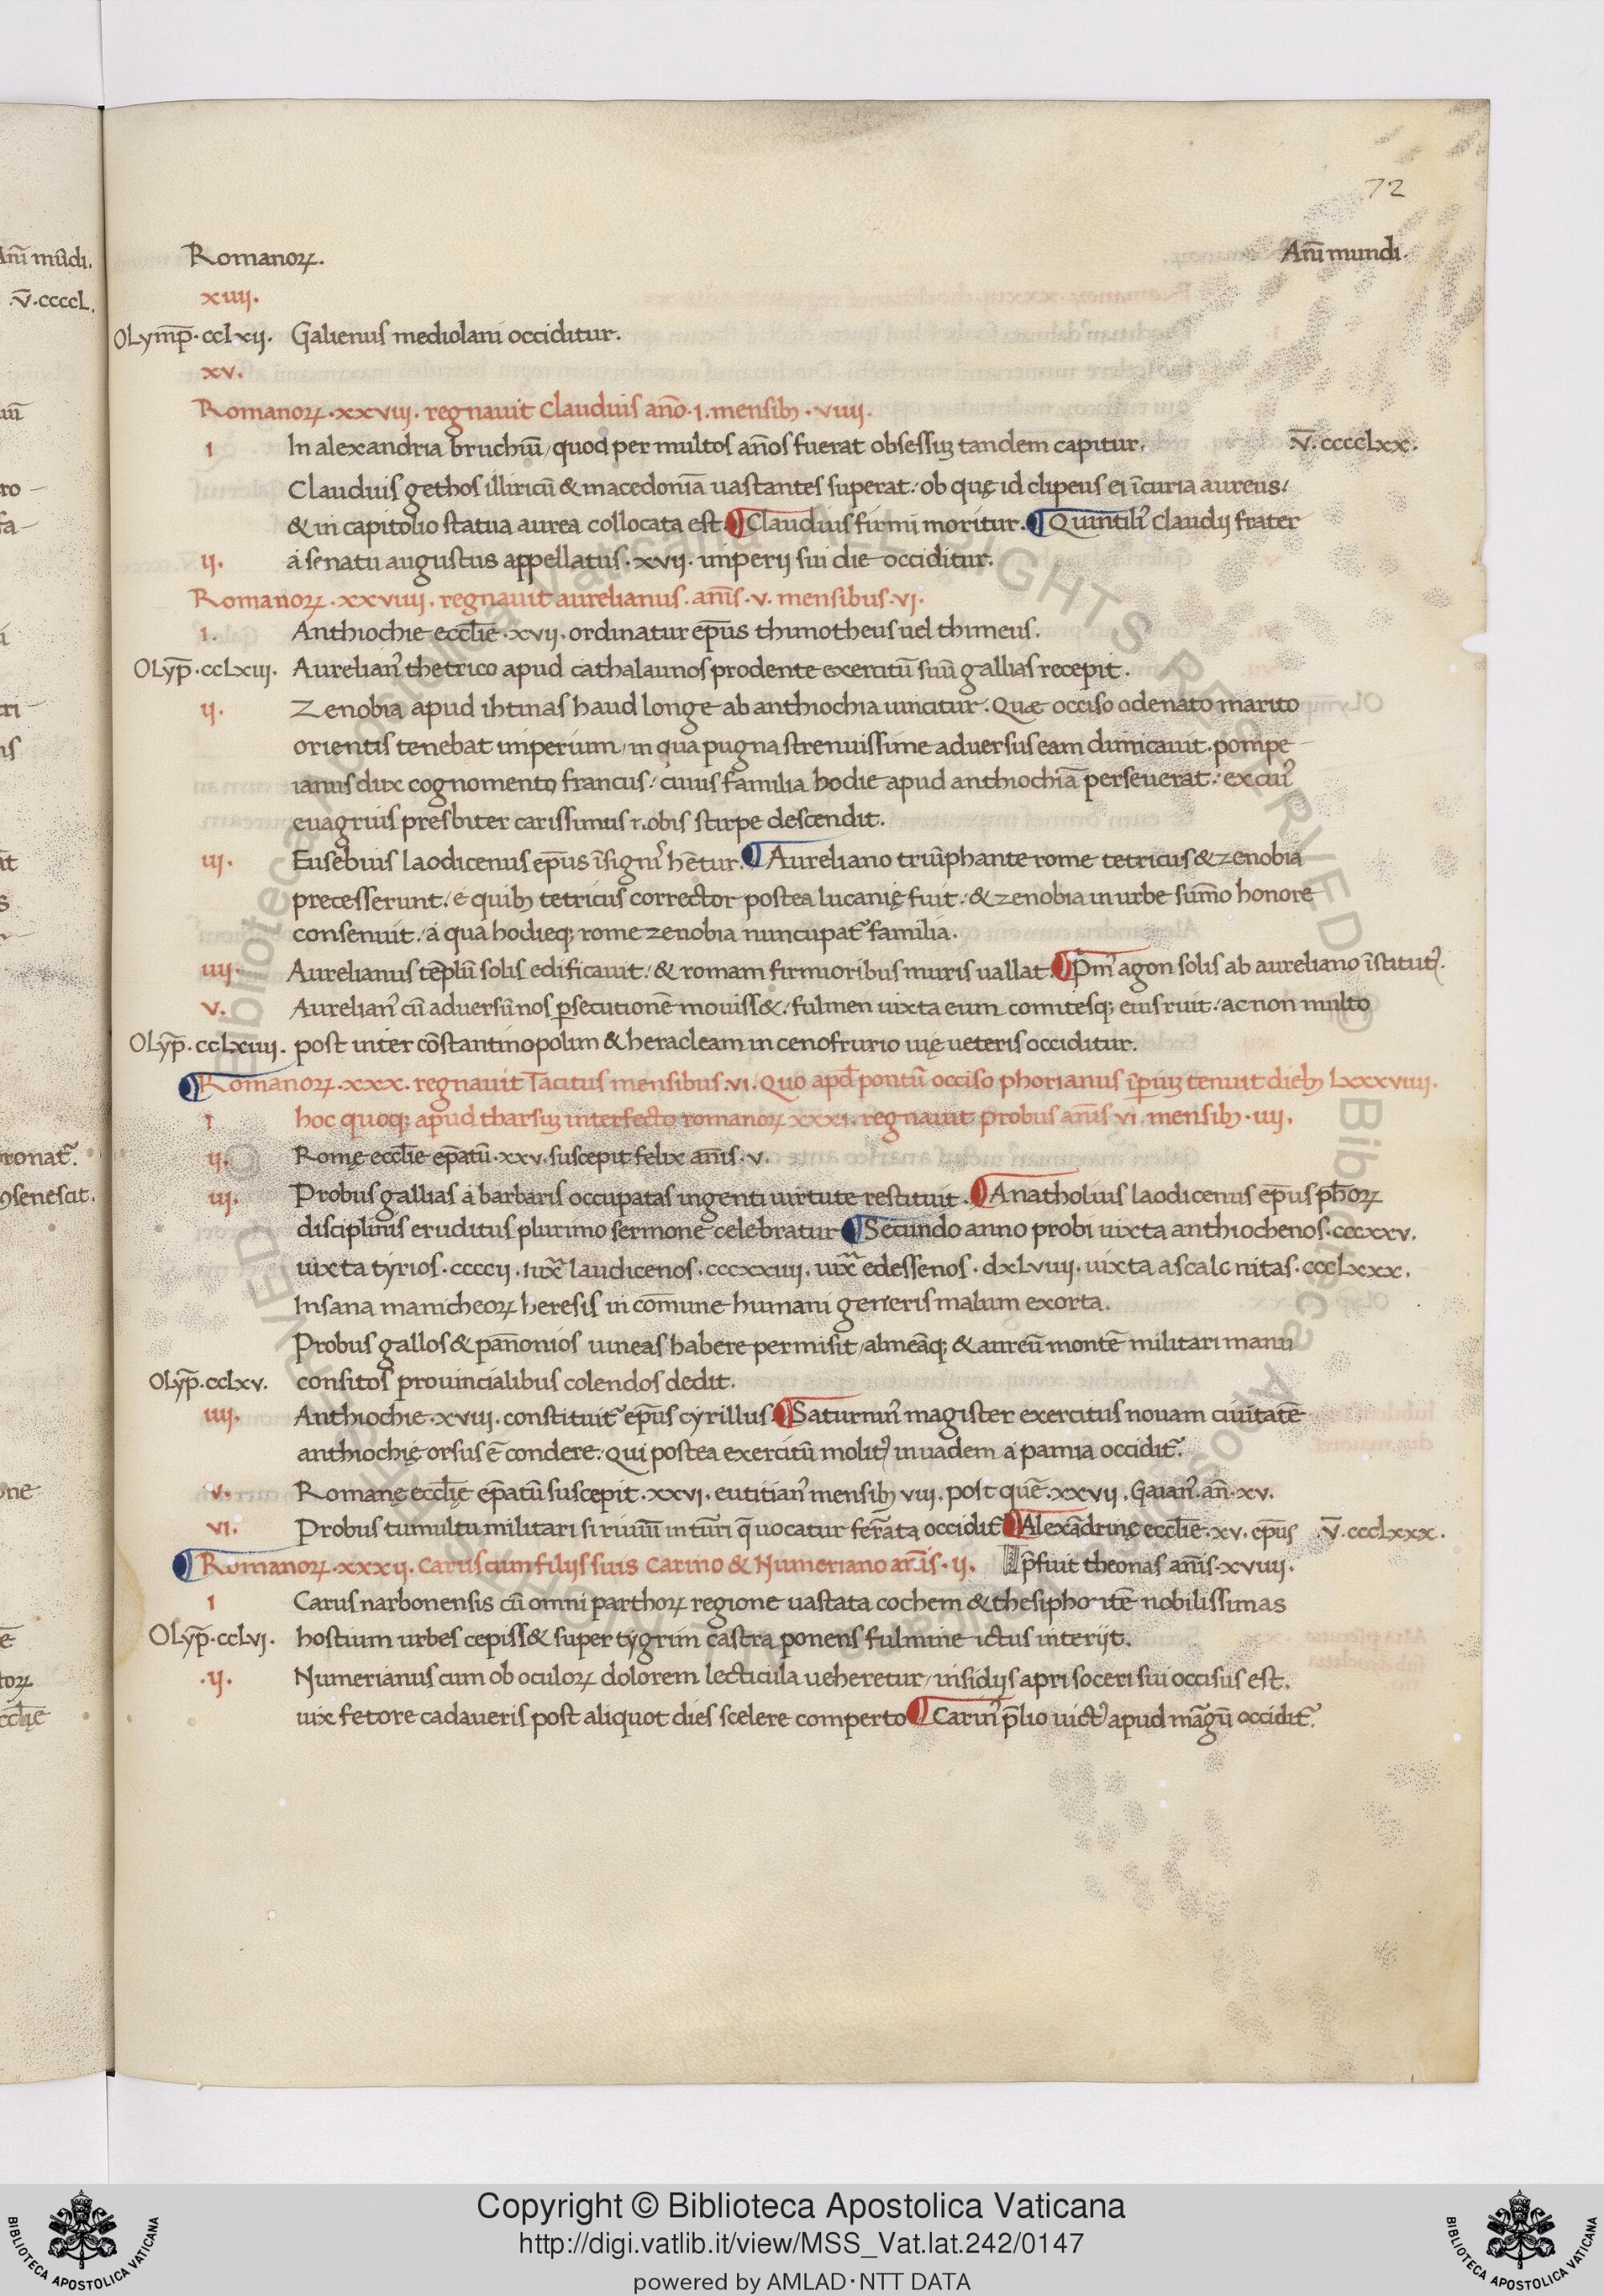 72
Romanoꝝ.
An̄i mundi.
xiiii.
OLymp̄. ccLxii. Galienus mediolani occiditur.
xv.
Romanoꝝ. xxviii. regnauit Claudius an̄o. 1. mensibꝫ. viiii.
1 In alexandria bruchiū/ quod per multos an̄os fuerat obsessuꝫ tandem capitur. v̄. cccccLxx.
Claudius gethos illiricū & macedoniā uastantes superat. ob quę id clipeus ei ī curia aureus/
& in capitolio statua aurea collocata est. ¶ Claudius firmi moritur. ¶ Quintiliꝰ Claudij frater
ij. a senatu augustus appellatus. xvij. imperij sui die occiditur.
Romanoꝝ. xxviiii. regnauit aurelianus. an̄is. v. mensibus. vi.
1. Anthiochie eccl̄ie. xvij. ordinatur ep̄us thimotheus uel thimeus.
OLyp̄. ccLxiii. Aurelianꝰ thetrico apud cathalaunos prodente exercitū suū gallias recepit.
ij. Zenobia apud ihtinas haud longe ab anthiochia uincitur. Quæ occiso odenato marito
orientis tenebat imperium/ in qua pugna strenuissime aduersus eam dimicauit. pompe
ianus dux cognomento francus/ cuius familia hodie apud anthiochiā perseuerat. ex cuiꝰ
euagrius presbiter carissimus nobis stirpe descendit.
iij. Eusebius laodicenus ep̄us īsignꝰ hētur. ¶ Aureliano triūphante rome tetricus & zenobia
precesserunt. e quibꝫ tetricus corrector postea lucanię fuit. & zenobia in urbe sum̄o honore
consenuit. a qua hodieqꝫ rome zenobia nuncupat᷑ familia.
iiij. Aurelianus tēplū solis edificauit. & romam firmioribus muris uallat. ¶ Pm̄ꝰ agon solis ab aureliano īstitutꝰ.
v. Aurelianꝰ cū aduersū nos ꝑsecutionē mouiss&. fulmen iuxta eum comitesqꝫ eius ruit. ac non multo
OLyp̄. ccLxiiii. post inter cōstantinopolim & heracleam in cenofrurio uię ueteris occiditur.
¶ Romanoꝝ. xxx. regnauit Tacitus mensibus. vi. Quo apd̄ pontū occiso phorianus īꝑiuꝫ tenuit diebꝫ Lxxxviiii.
1 hoc quoqꝫ apud tharsuꝫ interfecto romanoꝝ xxxi. regnauit probus an̄is vi. mensibꝫ. iiij.
ij. Romę eccl̄ie ep̄atū. xxv. suscepit felix an̄is. v.
iij. Probus gallias a barbaris occupatas ingenti uirtute restituit. ¶ Anatholius laodicenus ep̄us ph̄oꝝ
disciplinis eruditus plurimo sermone celebratur ¶ Secundo anno probi iuxta anthiochenos. cccxxv.
iuxta tyrios. ccccij. iux̄ laudicenos. cccxxiiij. iux̄ edessenos. dxLviiij. iuxta ascalonitas. cccLxxx.
Insana manicheoꝝ heresis in com̄une humani generis malum exorta.
Probus gallos & pan̄onios uineas habere permisit/ almeāqꝫ & aureū montē militari manu
OLyp̄. ccLxv. consitos prouincialibus colendos dedit.
iiij. Anthiochie. xviij. constituit᷑ ep̄us cyrillus. ¶ Saturninꝰ magister exercitus nouam ciuitatē
anthiochię orsus ē condere. Qui postea exercitū molitꝰ inuadem a pamia occidit᷑.
v. Romanę eccl̄ię ep̄atū suscepit. xxvi. eutitianꝰ mensibꝫ viii. post quē. xxvij. Gaianꝰ. an̄. xv.
vi. Probus tumultu militari sirmiū in tūri q̄ uocatur fer̄ata occidit᷑ ¶ Alexādrinę eccl̄ie. xv. ep̄us v̄. cccLxxx.
¶ Romanoꝝ. xxxij. Carus cum filijs suis Carino & Numeriano an̄is. ij. p̄fuit theonas an̄is. xviiij.
1 Carus narbonensis cū omni parthoꝝ regione uastata cochem & thesiphontē nobilissimas
OLyp̄. ccLvi. hostium urbes cepiss& super tygrim castra ponens fulmine ictus interijt.
.ij. Numerianus cum ob oculoꝝ dolorem lecticula ueheretur/ insidijs apri soceri sui occisus est.
uix fetore cadaueris post aliquot dies scelere comperto ¶ Carinꝰ p̄lio uictꝰ apud māgū occidit᷑.
Copyright © Biblioteca Apostolica Vaticana
http://digi.vatlib.it/view/MSS_Vat.lat.242/0147
powered by AMLAD·NTT DATA